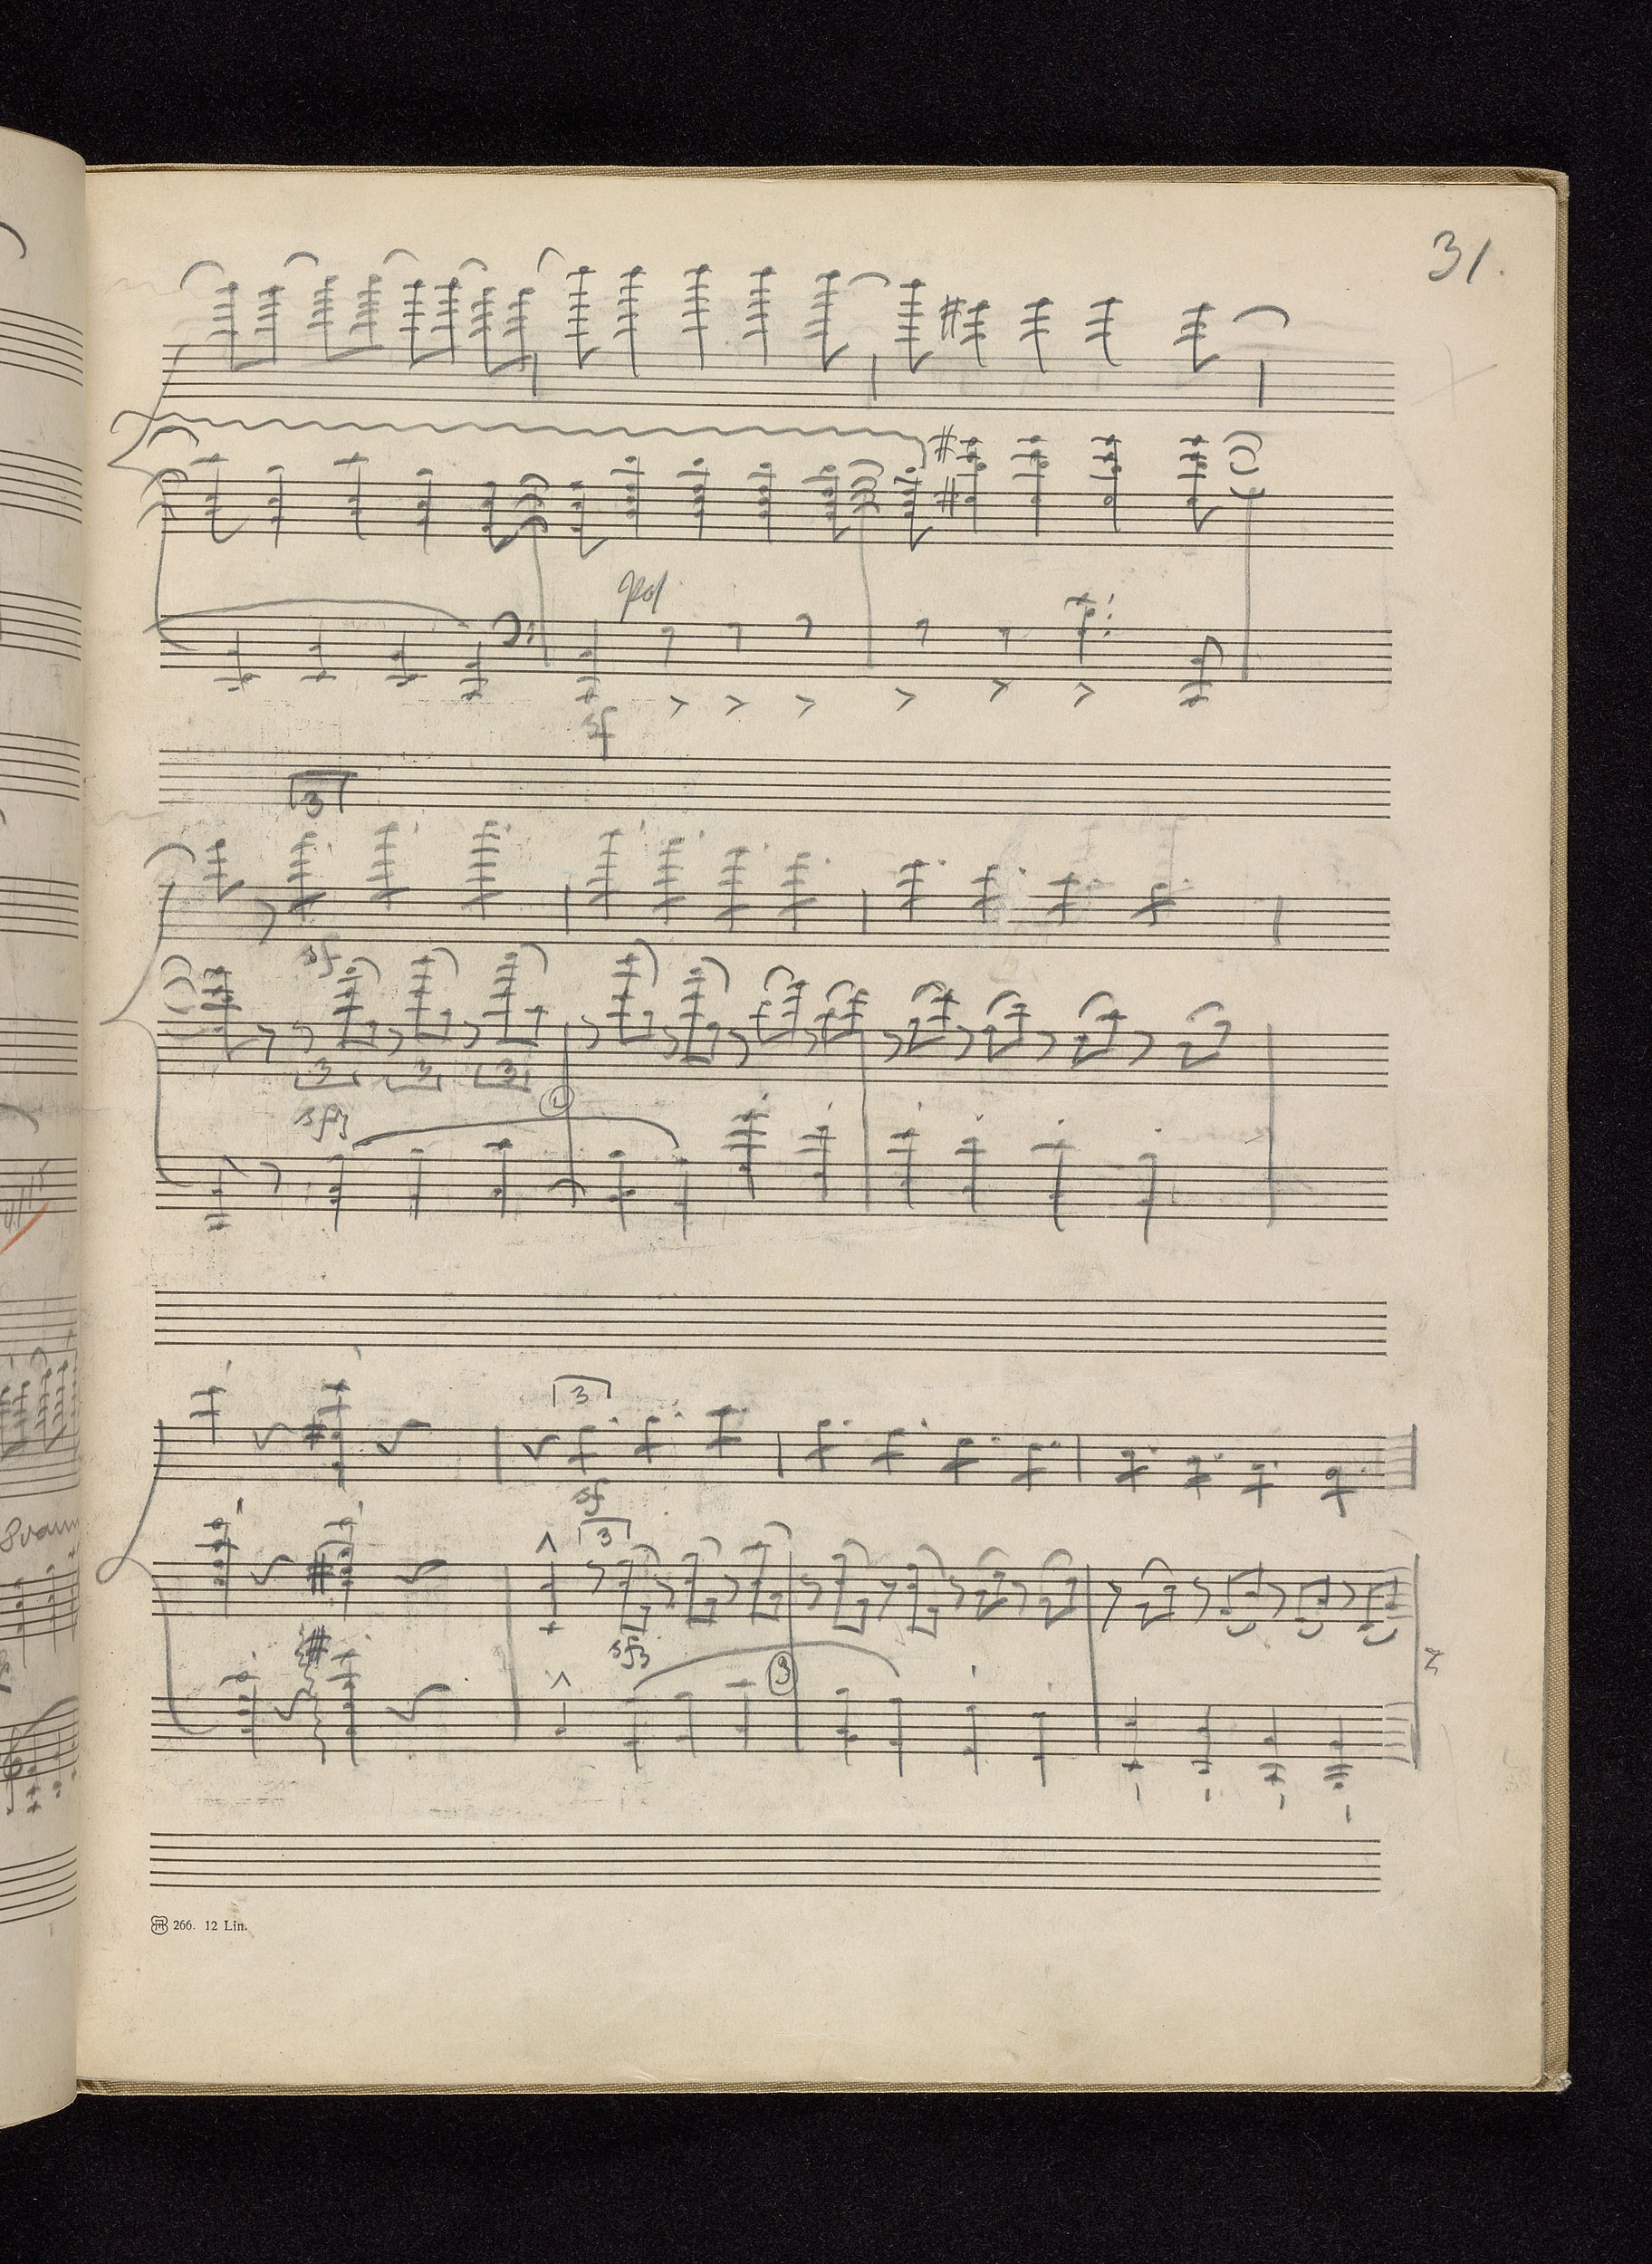 31.
sf
3
sf
3 3 3
sfz
3
sf
3
sfz
3
266. 12 Lin.